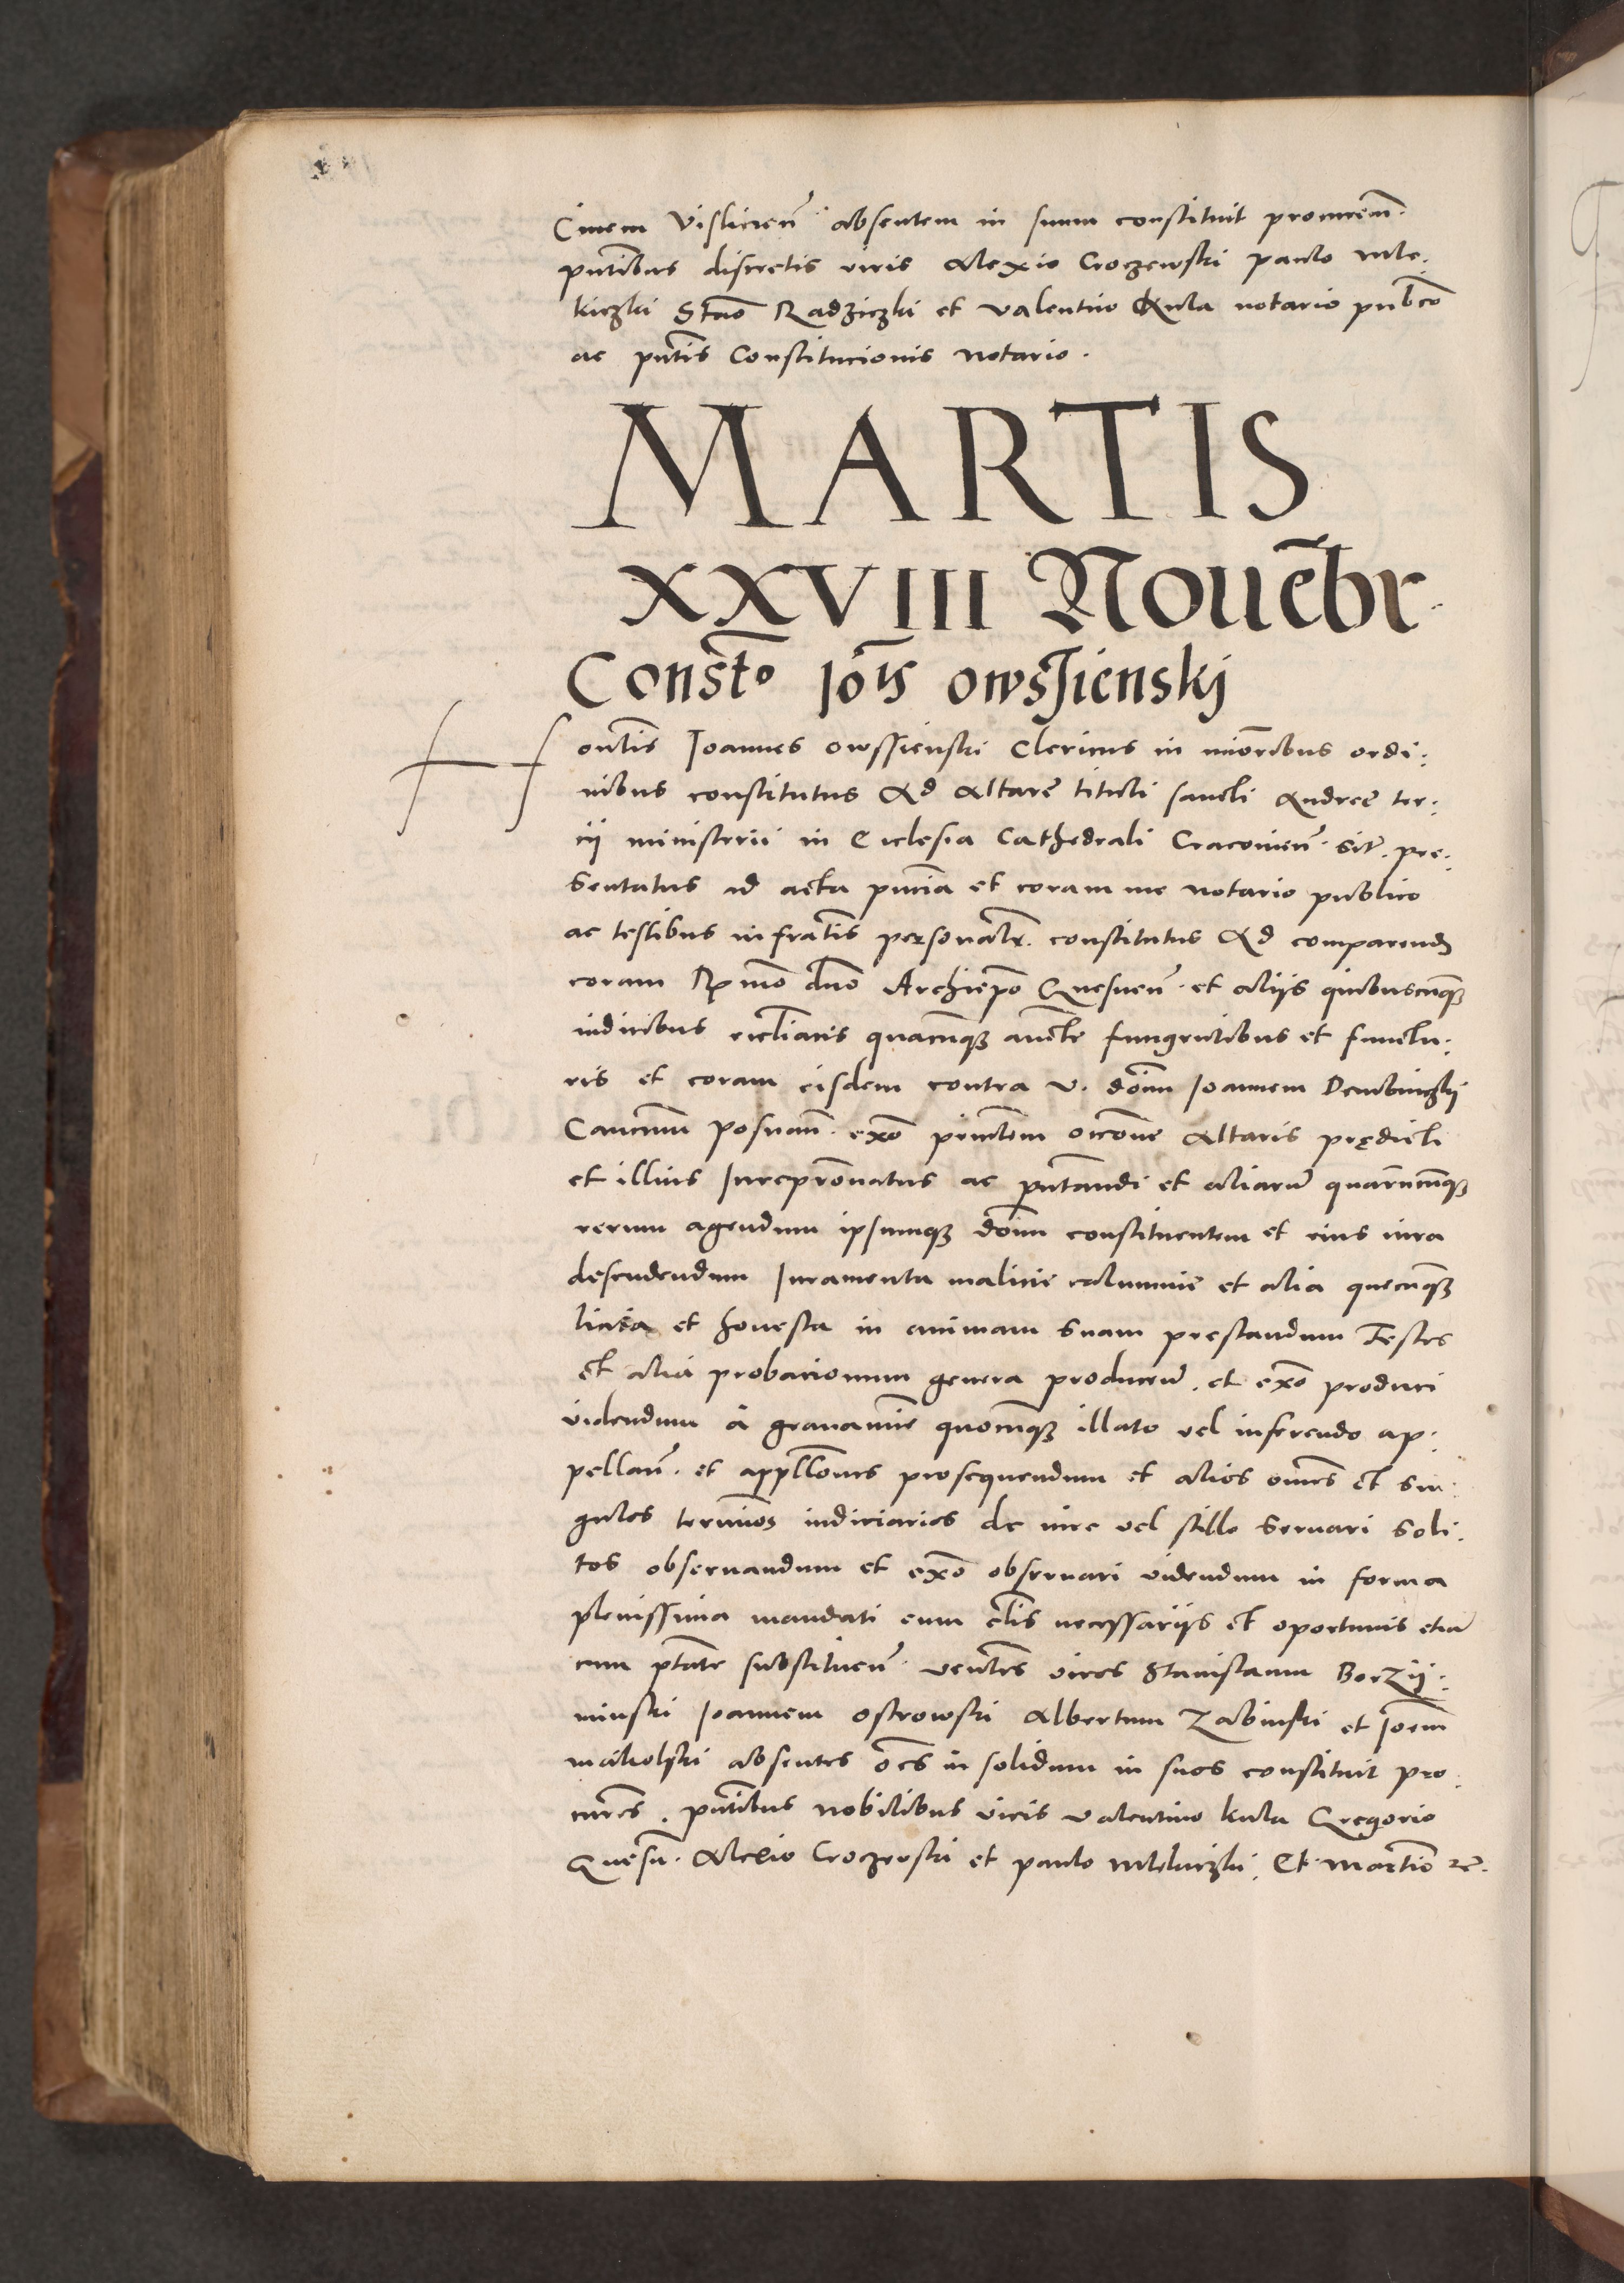 Ciuem Visliciens̄ absentem in suum constituit procurem̄.
pn̄tibus discretis viris Alexio Croczewski paulo Mle-
kiczki Stn̄o Radziczki et Valentino Kula notario pub̄co
ac pn̄tis Constitucionis Notario.
MARTIS
XXVIII Nouēbr.
Consto Joīs owssienskj
Hon̄tis Joannes owssienski Clericus in mīoribus ordi:
nibus constitutus Ad Altare tituli sancti Andree ter:
cij ministerii in Ecclesia Cathedrali Cracouien̄. sit. pre:
sentatus ad acta pn̄cia et coram me notario publico
ac testibus infrātis personalr̄. constitutus Ad comparend
coram Rmo dn̄o Archiepō Gnesnen̄. et aliis quibuscunqz
iudicibus eccl̄iaticis quacunqz aucte fungentibus et functu:
ris et coram eisdem contra V. dōm Joannem Dembinczkij
Cancum̄ Posnan̄. exō pn̄ctem occōne Altaris prędicti
et illius Jurepr̄onatus ac pn̄tandi et aliarū quarūcunqz
rerum agendum ipsumqz dōm constituentem et eius iura
defendendum Juramenta malicie calumnie et alia quecunqz
licita et honesta in animam suam prestandum Testes
et alia probacionum genera producen̄. et exō produci
videndum à grauamīe quocunqz illato vel inferendo ap:
pellan̄. et appll̄ones prosequendum et alios om̄es et sin:
gulos termīos iudiciarios de iure vel stillo seruari soli:
tos obseruandum et exō obseruari videndum in forma
plenissima mandati cum cl̄is necessarijs et oportunis etiā
cum ptāte substituen̄. ven̄les viros Stanislaum Borzij:
minski Joannem Ostrowski Albertum Zabinski et Joem̄
makolski absentes oēs in solidum in suos constituit pro
cures. pn̄tibus nobilibus viris Valentino kula Gregorio
Gnesn̄. Alexio Croczewski et paulo Mlekiczki. Et Martīo